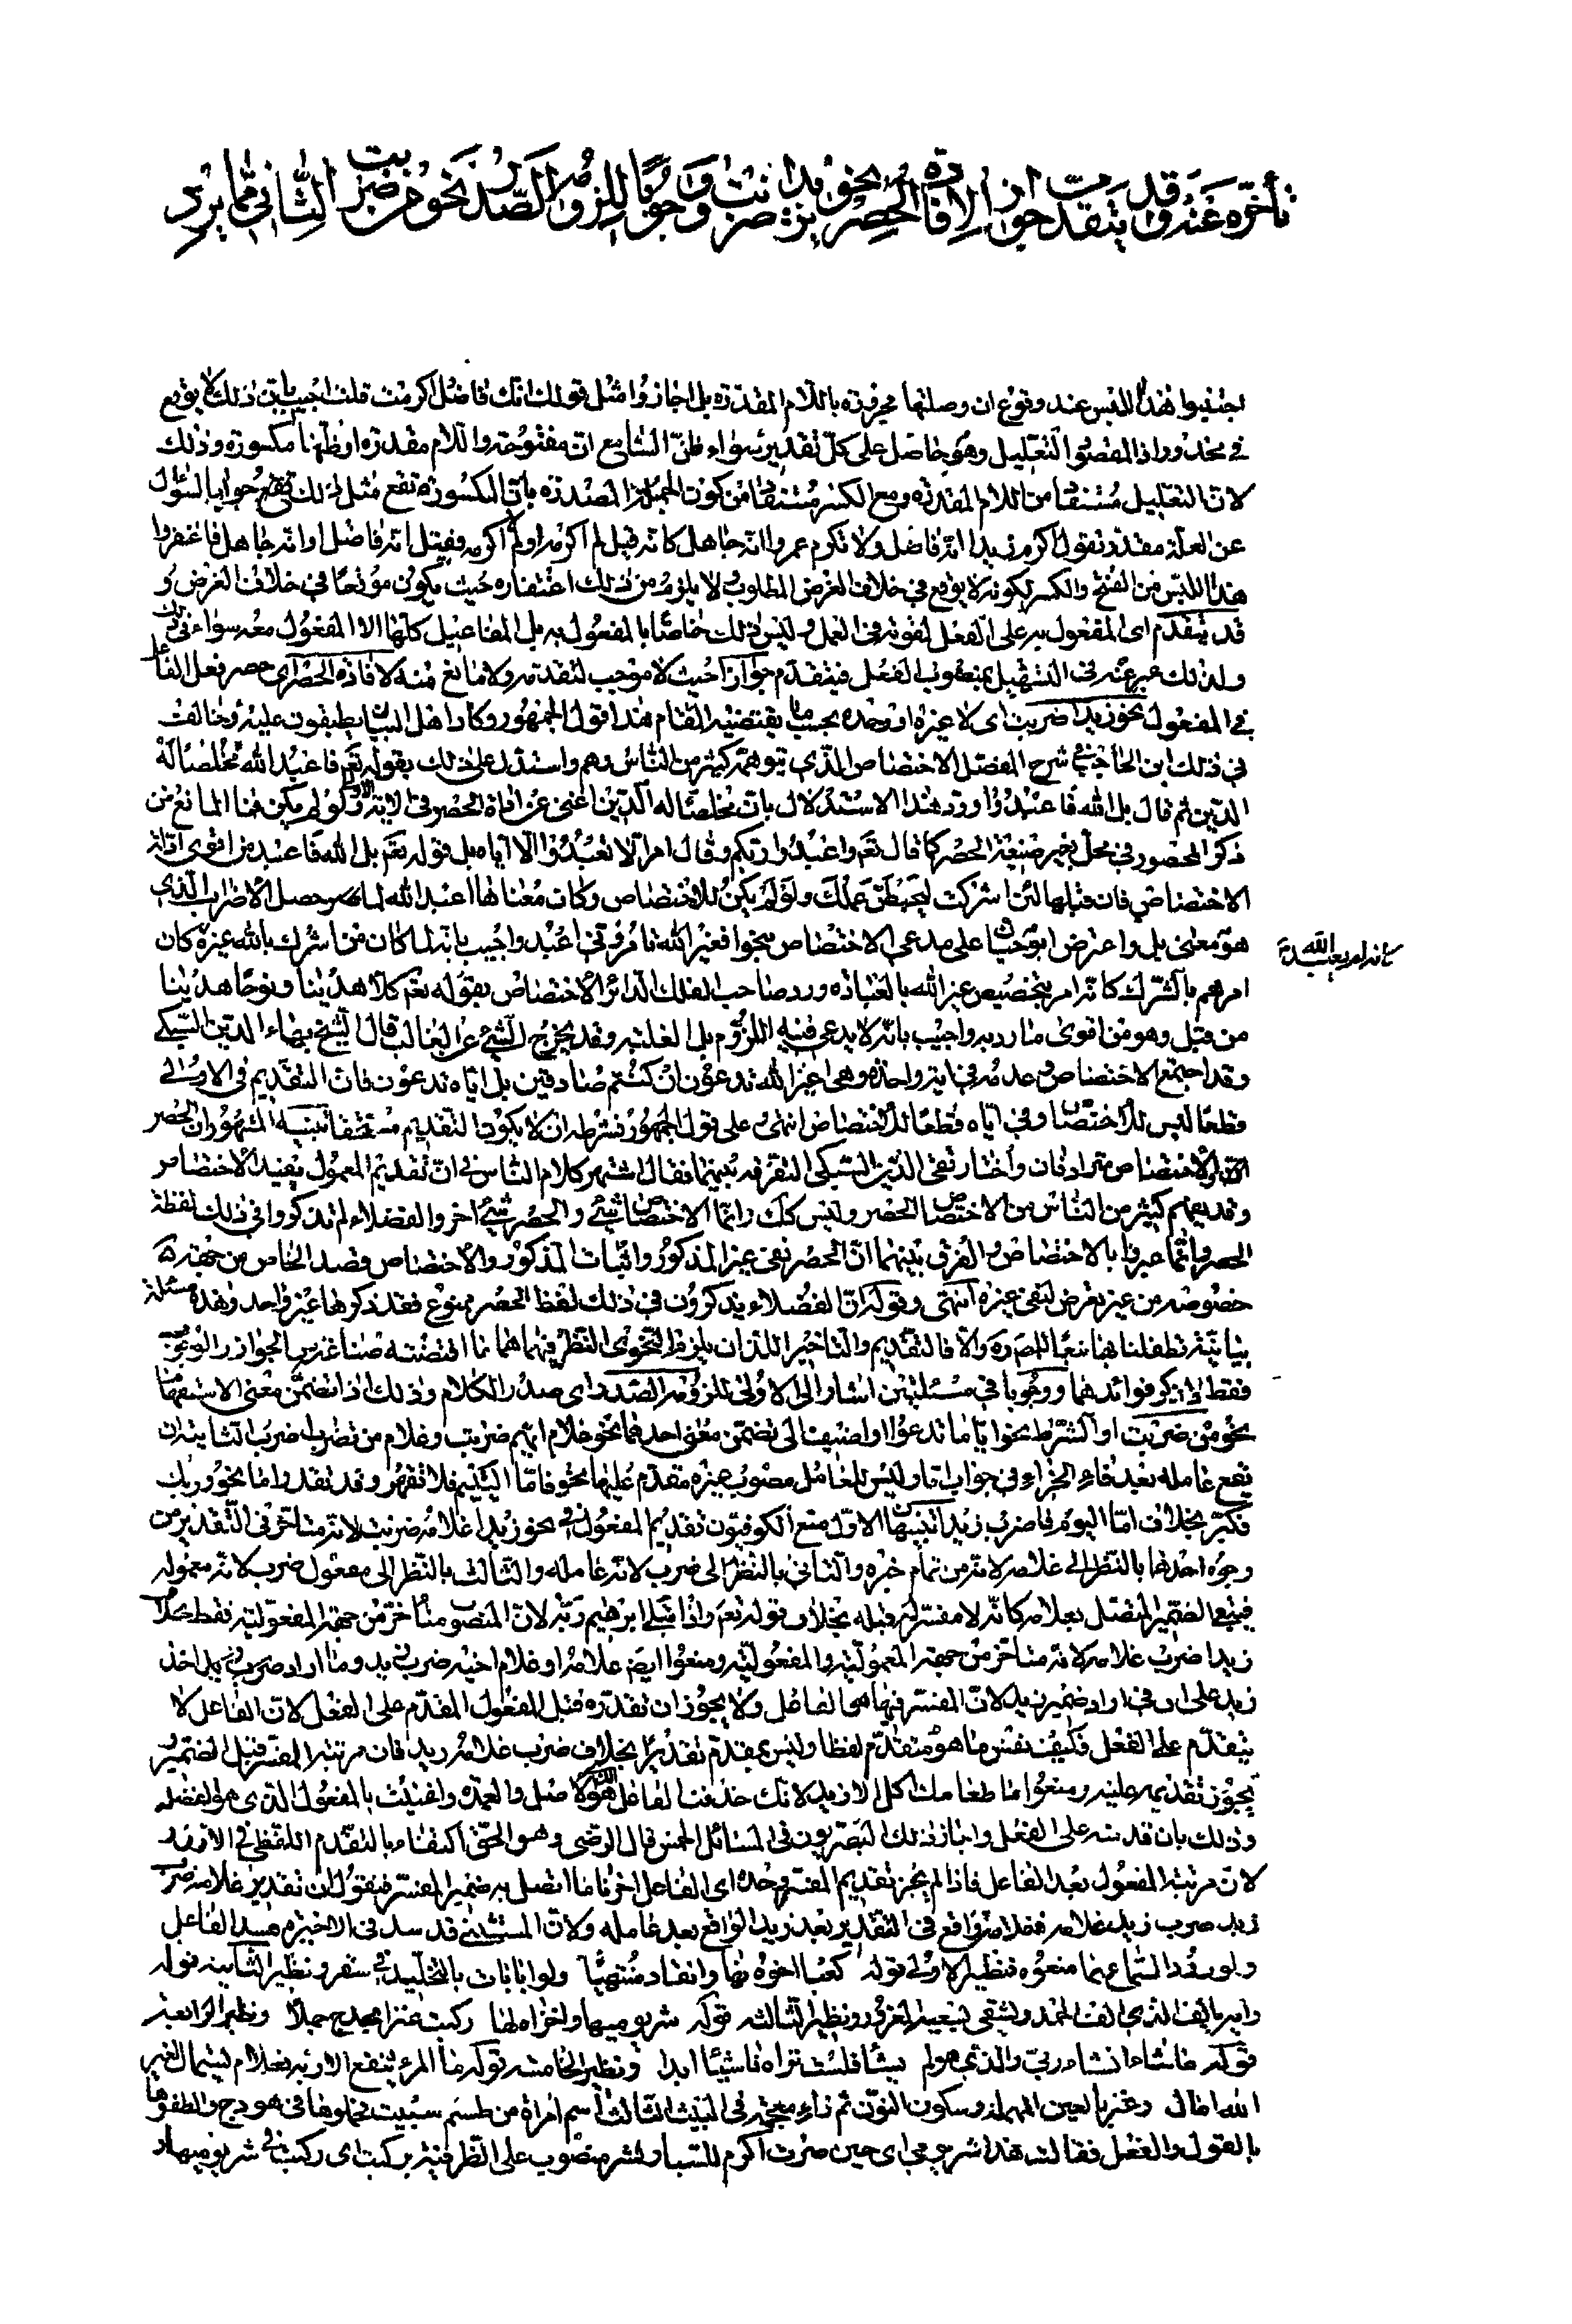 تأخره عنه وقد يتقدم جوازا لإفادة الحصر نحو زيدا ضربت ووجوبا للزومه الصدر نحو من ضربت الثاني مما يرد
اجتنبوا هذا اللبس عند وقوع ان وصلتها مجرورة باللام المقدرة بل اجازوا مثل قولك انك فاضل اكرمت قلت اجيب بان ذلك لا يوقع
في محذور اذ المقصود التعليل وهو حاصل على كل تقدير سواء ظن السامع ان مفتوحة واللام مقدرة او ظنها مكسورة وذلك
لان التعليل مستفاد من اللام المقدرة ومع الكسر مستفاد من كون الجملة المصدرة بان المكسورة تقع مثل ذلك تقع جوابا لسؤال
عن العلة مقدر تقول اكرم زيدا انه فاضل ولا تكرم عمروا انه جاهل كانه قيل لم اكرمه او لم لا اكرمه فقيل انه فاضل او انه جاهل فاغتفروا
هذا اللبس من الفتح والكسر لكونه لا يوقع في خلاف الغرض المطلوب ولا يلزم من ذلك اغتفاره حيث يكون موقعا في خلاف الغرض و
قد يتقدم اى المفعول به على الفعل لقوته في العمل وليس ذلك خاصا بالمفعول به بل المفاعيل كلها الا المفعول معه سواء في ذلك
ولذلك عبر عنه في التسهيل بمنصوب الفعل فيتقدم جوازا حيث لا موجب لتقدمه ولا مانع منه لافادة الحصر اى حصر فعل الفاعل
في المفعول نحو زيدا ضربت اى لا غيره او وحده بحسب ما يقتضيه المقام هذا قول الجمهور وكاد اهل البيان يطبقون عليه وخالف
في ذلك ابن الحاجب في شرح المفصل الاختصاص الذي يتوهمه كثير من الناس وهم واستدل على ذلك بقوله تعم فاعبد الله مخلصا له
الدين ثم قال بل الله فاعبد ورد هذا الاستدلال بان مخلصا له الدين اغنى عن افادة الحصر في الاية الاولى ولو لم يكن فما المانع من
ذكر المحصور في محل بغير صيغة الحصر كما قال تعم واعبدوا ربكم وقال امر الا تعبدوا الا اياه بل قوله تعم بل الله فاعبد من اقوى ادلة
الاختصاص فان قبلها لئن اشركت ليحبطن عملك ولو لم يكن للاختصاص وكان معناها اعبد الله لما حصل الاضراب الذي
هو معنى بل واعترض ابو حيان على مدعي الاختصاص بنحو افغير الله تامروني اعبد واجيب بانه لما كان من اشرك بالله غيره كان
كانه لم يعبد الله
امرهم بالشرك كانه امر بتخصيص غير الله بالعبادة ورد صاحب الفلك الدائر الاختصاص بقوله تعم كلا هدينا ونوحا هدينا
من قبل وهو من اقوى ما رد به واجيب بانه لا يدعى فيه اللزوم بل الغلبة وقد يخرج الشيء عن الغالب قال الشيخ بهاء الدين السبكي
وقد اجتمع الاختصاص وعدمه في اية واحدة وهي اغير الله تدعون ان كنتم صادقين بل اياه تدعون فان التقديم في الاولى
قطعا ليس للاختصاص وفي اياه قطعا للاختصاص انتهى على قول الجمهور فشرطه ان لا يكون التقديم مستحقا تنبيه المشهور ان الحصر
والاختصاص مترادفان واختار تقي الدين السبكي التفرقة بينهما فقال اشتهر كلام الناس في ان تقديم المعمول يفيد الاختصاص
وقد يفهم كثير من الناس من الاختصاص الحصر وليس كذلك وانما الاختصاص شيء والحصر شيء اخر والفضلاء لم يذكروا في ذلك لفظة
الحصر وانما عبروا بالاختصاص والفرق بينهما ان الحصر نفي غير المذكور واثبات المذكور والاختصاص قصد الخاص من جهة
خصوصه من غير تعرض لنفي غيره انتهى وقوله ان الفضلاء لم يذكرون في ذلك لفظ الحصر ممنوع فقد ذكرها غير واحد وهذه مسئلة
بيانية تطفلنا بها تبعا للمص ره والا فالتقديم والتاخير اللذان يلزم النحوي النظر فيهما هما ما اقتضته صناعته من الجواز والوجوب
فقط لا ذكر فوائدهما ووجوبا في مسئلتين اشار الى الاولى للزومه الصدر اى صدر الكلام وذلك اذا تضمن معنى الاستفهام
نحو من ضربت او الشرط نحو ايا ما تدعوا او اضيف الى تضمن معنى احدهما نحو غلام ايهم ضربت وغلام من تضرب اضرب الثانية ان
يقع عامله بعد فاء الجزاء في جواب اما وليس للعامل منصوب غيره مقدم عليها نحو فاما اليتيم فلا تقهر وقد تقدر اما نحو وربك
فكبر بخلاف اما اليوم فاضرب زيدا تنبيهان الاول منع الكوفيون تقديم المفعول في نحو زيدا غلامه ضرب لانه متاخر في التقدير من
وجوه احدها بالنظر الى غلامه لانه من تمام خبره والثاني بالنظر الى ضرب لانه عامله والثالث بالنظر الى مفعول ضرب لانه معموله
فيبقى الضمير المتصل بغلامه كانه لا مفسر له قبله بخلاف قوله تعم واذ ابتلى ابرهيم ربه لان المنصوب متأخر من جهة المفعولية فقط كذا
زيدا ضرب غلامه لانه متاخر من جهة المعمولية والمفعولية ومنعوا ايضا غلامه او غلام اخيه ضرب زيد وما اراد ضرب زيد اخذ
زيد على ان في اراد ضمير زيد لان المفسر فيها هي الفاعل ولا يجوز ان تقدره قبل المفعول المقدم على الفعل لان الفاعل لا
يتقدم على الفعل فكيف يفسر ما هو متقدم لفظا وليس بمقدم تقديرا بخلاف ضرب غلامه زيد فان مرتبة المفسر قبل الضمير
يجوز تقديمه عليه ومنعوا ما طعامك اكل الا زيد لانك حذفت الفاعل الذي هو الاصل والعمدة واعتنيت بالمفعول الذي هو الفضلة
وذلك بان قدمته على الفعل واجاز ذلك البصريون في المسائل الخمس قال الرضي وهو الحق اكتفاء بالتقدم اللفظي في الاولى
لان مرتبة المفعول بعد الفاعل فاذا لم يجز تقديم المفسر وحده اى الفاعل اخرنا ما اتصل به ضمير المفسر فيقول ان تقدير غلامه ضرب
زيد ضرب زيد غلامه فغلامه واقع في التقدير بعد زيد الواقع بعد عامله ولان المستثنى قد سد في الاخيرة مسد الفاعل
وبورود السماع بما منعوه فنظير الاولى قوله كعبا اخوه نهى وانقاد منتهيا ولو ابى بات بالتخليد في سقر ونظير الثانية قوله
رايه يالف الذي الف الحمد ويشقى بسعيه المغرور ونظير الثالثة قوله شر يوميها واخزاه لها ركبت عنز بحدج جملا ونظير الرابعة
قوله ما شاء انشاء ربي والذي هو لم يشأ فلست تراه ناشئا ابدا ونظير الخامسة قوله ما المرء ينفع الا ربه فعلام يستمال لغير
الله امال وعنز بالعين المهملة وسكون النون ثم زاء معجمة في البيت الثالث اسم امراة من طسم سبيت فحملوها في هودج والطفوها
بالقول والفعل فقالت هذا شر يومي اى حين صرت اكرم للسباء وشر منصوب على الظرفية بركبت اى ركبت في شر يوميها